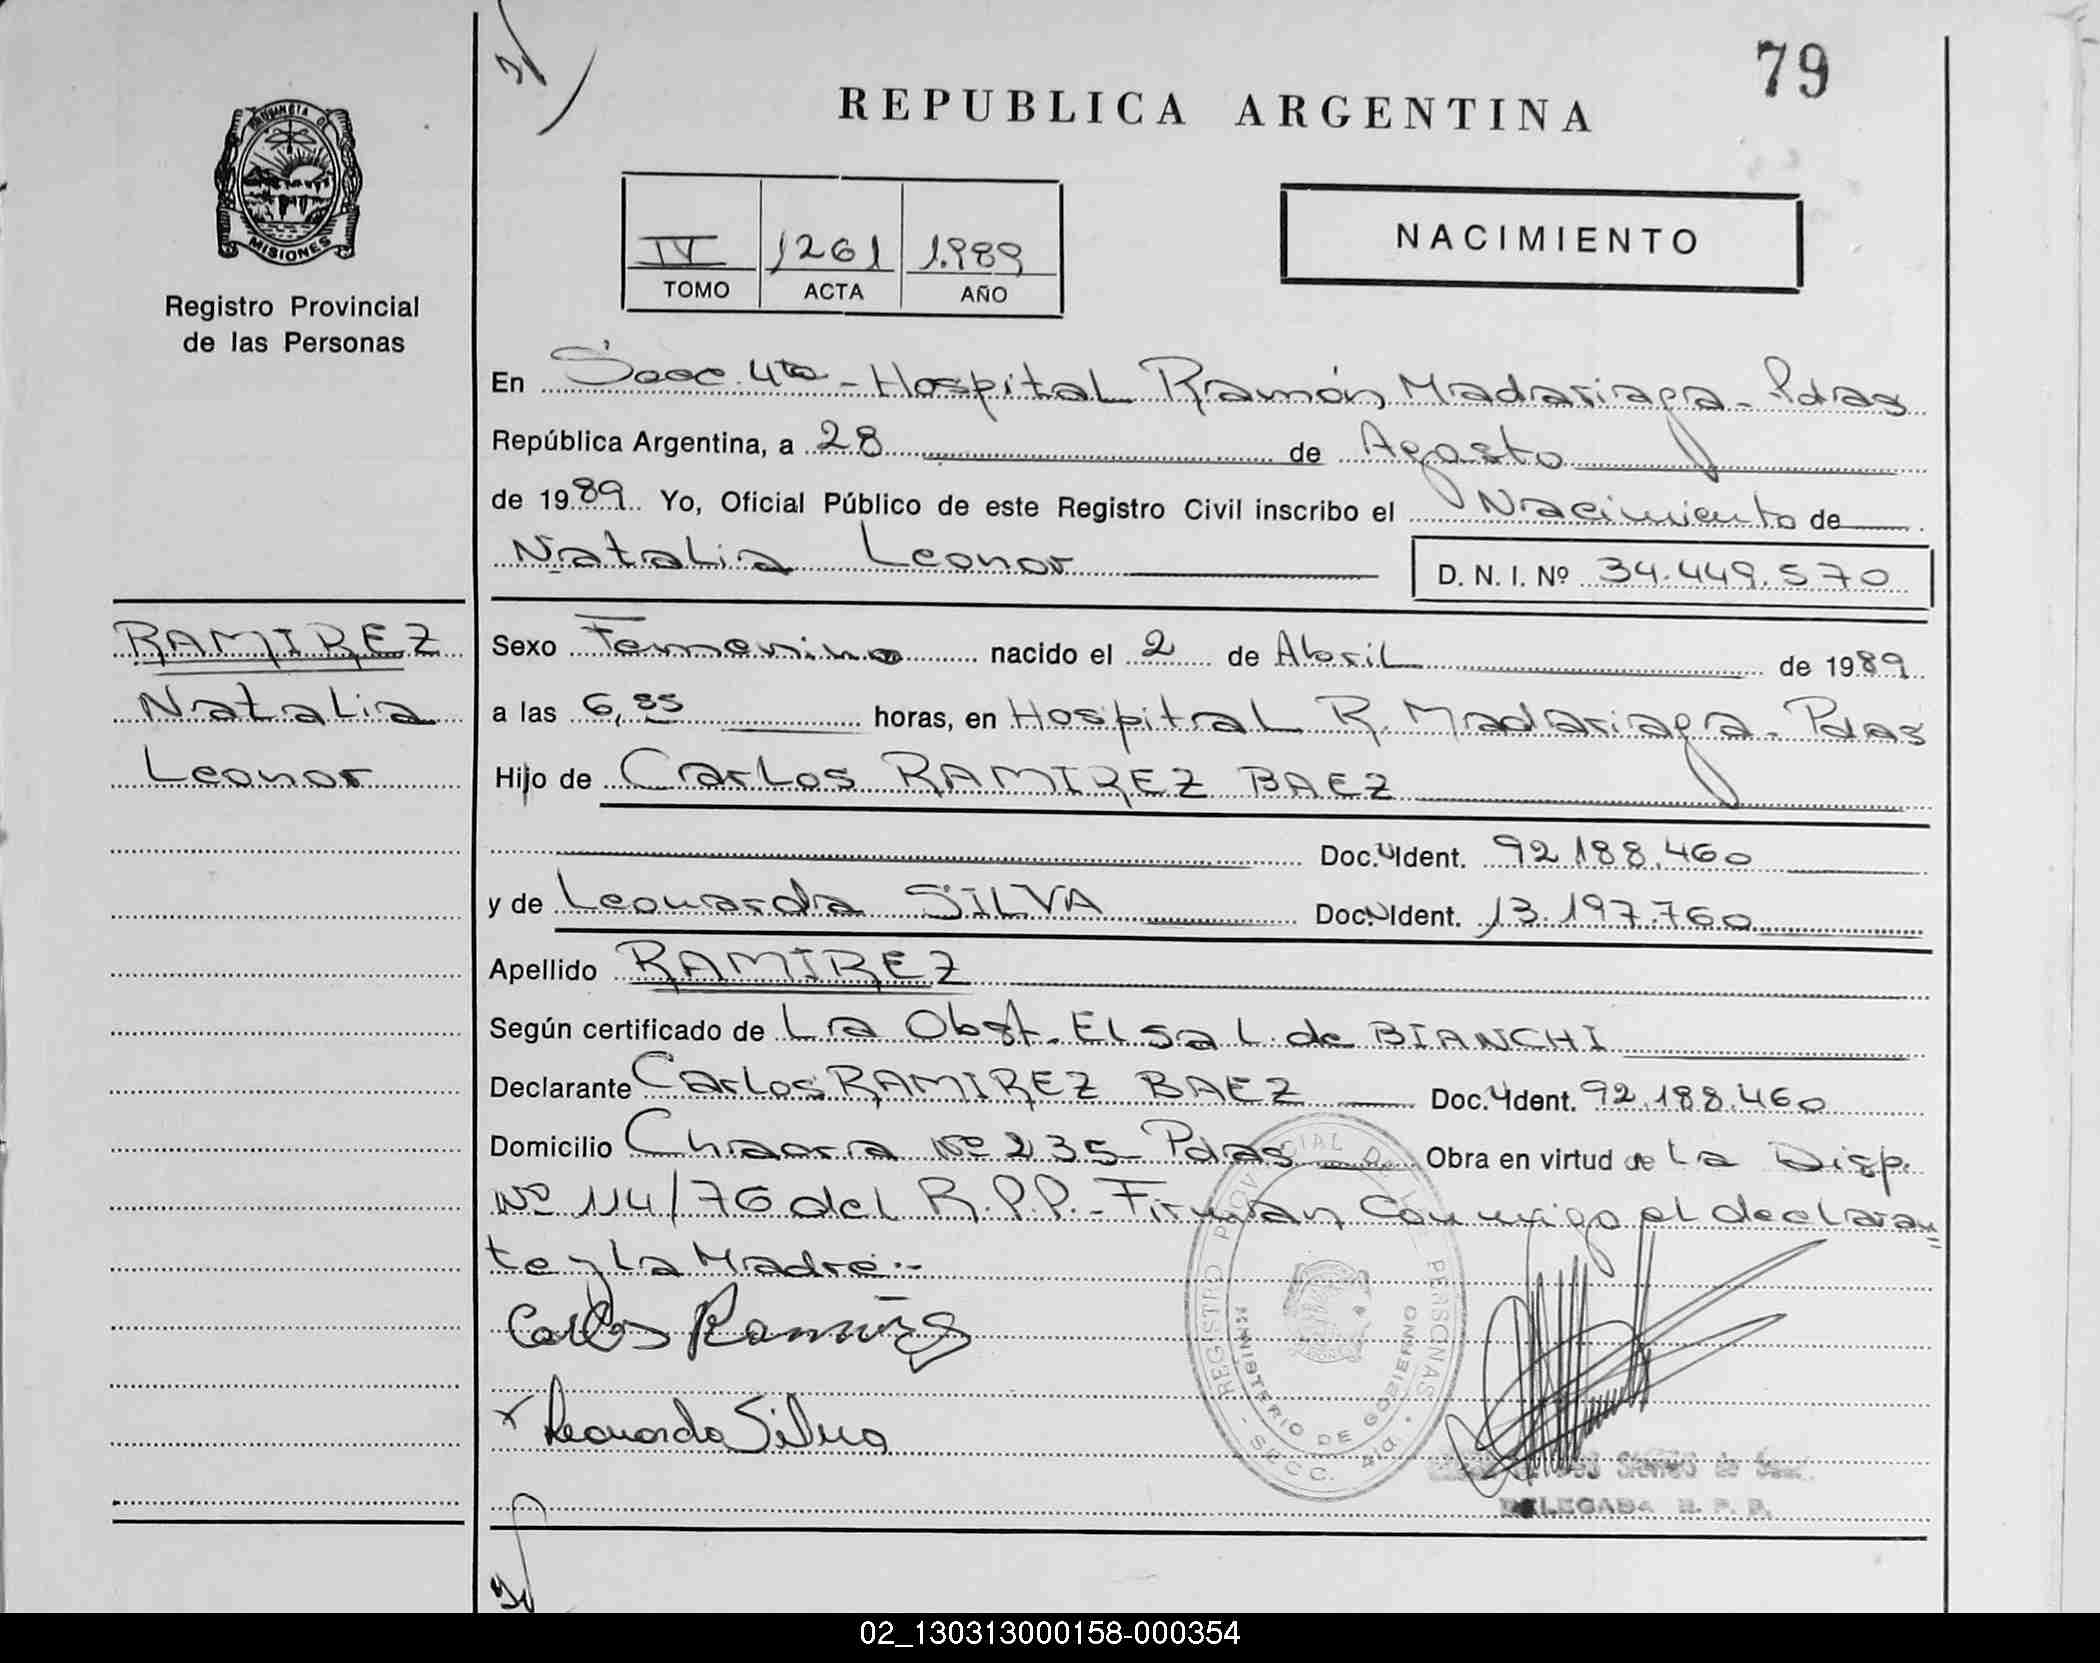 79
REPUBLICA ARGENTINA
PROVINCIA DE
MISIONES
Registro Provincial
de las Personas
IV 1261 1.989
TOMO ACTA AÑO
NACIMIENTO
En Secc. 4ta - Hospital Ramón Madariaga - Pdas
República Argentina, a 28 de Agosto
de 1989 Yo, Oficial Público de este Registro Civil inscribo el Nacimiento de
Natalia Leonor
D. N. I. Nº 34.449.570
RAMIREZ
Natalia
Leonor
Sexo Femenino nacido el 2 de Abril de 1989
a las 6,35 horas, en Hospital R. Madariaga - Pdas
Hijo de Carlos RAMIREZ BAEZ
Doc. Ident. 92.188.460
y de Leonarda SILVA Doc. Ident. 13.197.760
Apellido RAMIREZ
Según certificado de La Obst. Elsa L. de BIANCHI
Declarante Carlos RAMIREZ BAEZ Doc. Ident. 92.188.460
Domicilio Chacra Nº 235 - Pdas Obra en virtud de La Disp.
Nº 114/76 del R.P.P. - Firman Conmigo el declaran
te y La Madre:-
Carlos Ramirez
x Leonarda Silva
REGISTRO PROVINCIAL DE LAS PERSONAS
MINISTERIO DE GOBIERNO
SECC. 4ta
DELEGADA R. P. P.
02_130313000158-000354